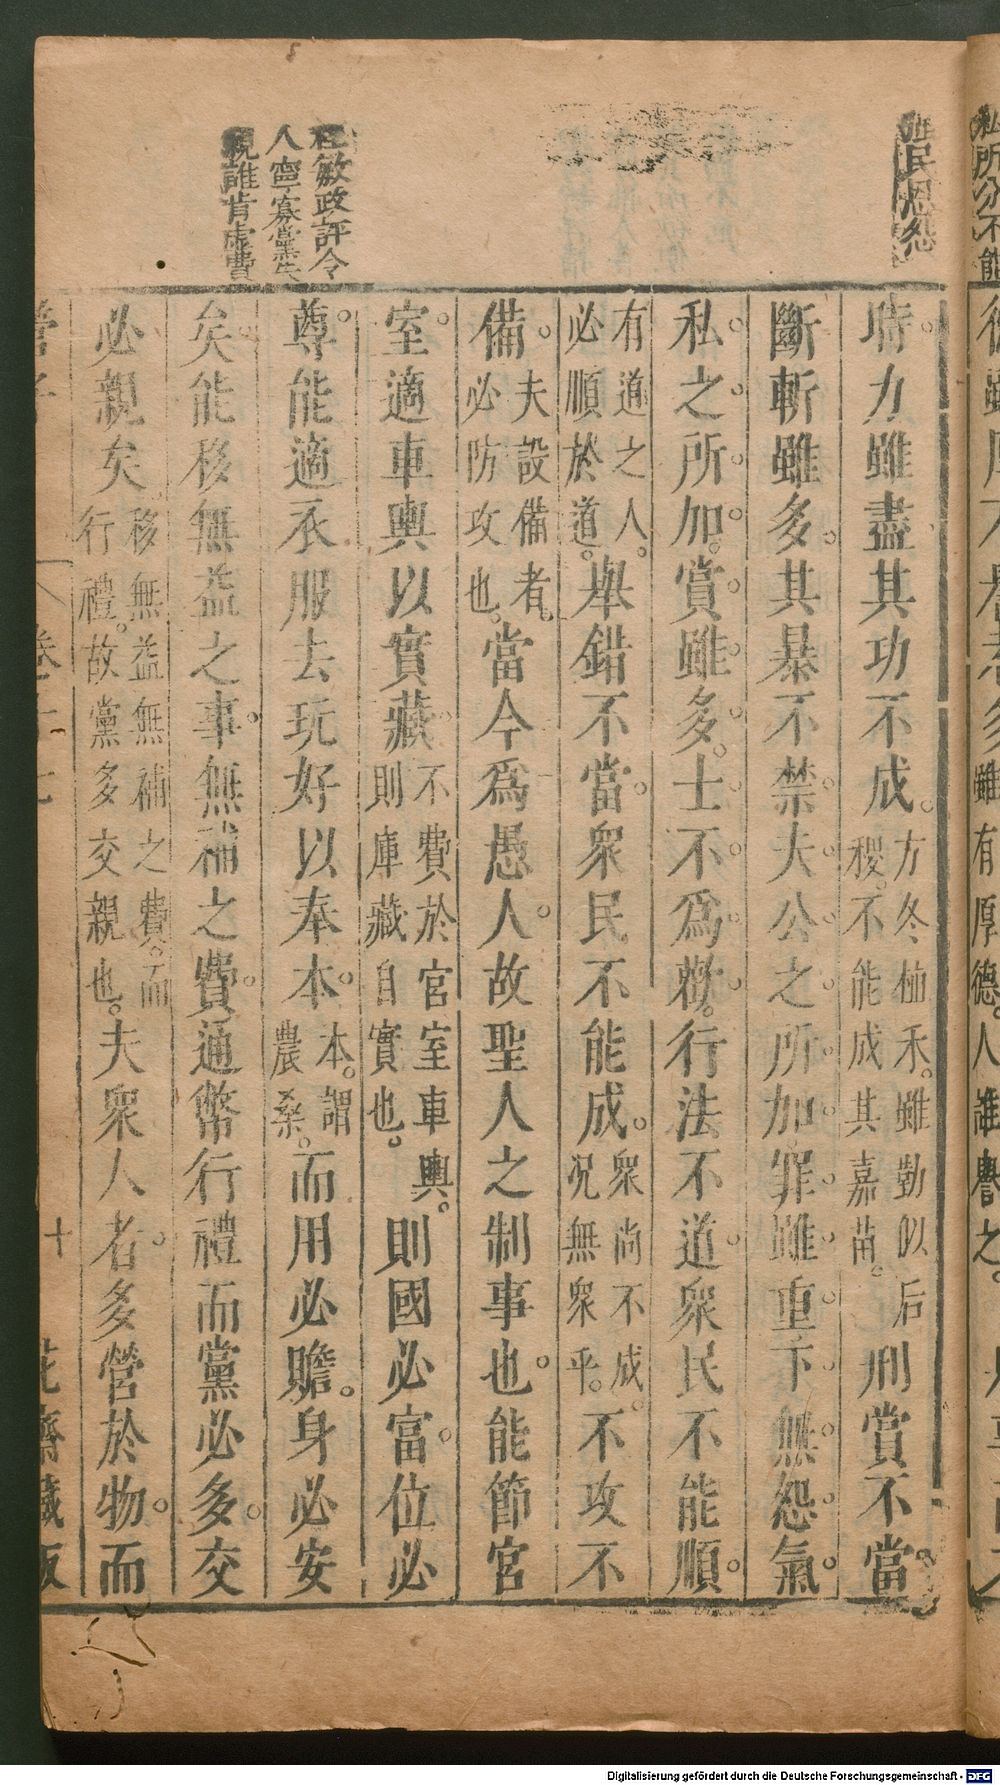 雖有厚德。人誰譽之。
民恩怨
程敏政評今
人寧寡黨失
親誰肯虛費
時力雖盡其功不成。方冬植禾。雖勤似后稷。不能成其嘉苗。刑賞不當
斷斬雖多。其暴不禁。夫公之所加。罪雖重。下無怨氣。
私之所加。賞雖多。士不爲歡。行法不道。衆民不能順。
有道之人。必順於道。舉錯不當。衆民不能成。衆尚不成。况無衆乎。不攻不
備。夫設備者。必防攻也。當今爲愚人。故聖人之制事也。能節宮
室。適車輿以實藏。不費於宮室車輿。則庫藏自實也。則國必富。位必
尊。能適衣服去玩好以奉本。本。謂農桑。而用必贍。身必安
矣。能移無益之事。無補之費。通幣行禮而黨必多。交
必親矣。移無益無補之費。而行禮。故黨多交親也。夫衆人者。多營於物。而
管子 卷十七 十 花齋藏版
Digitalisierung gefördert durch die Deutsche Forschungsgemeinschaft - DFG